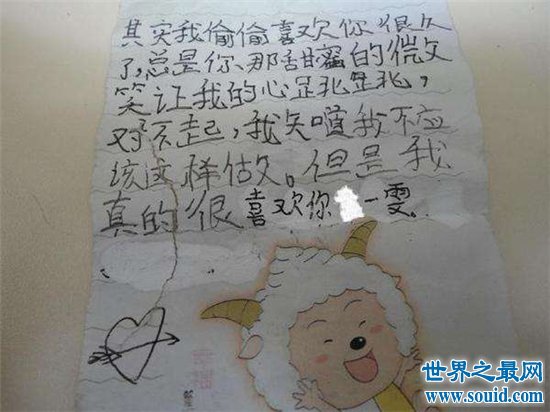 其实我偷偷喜欢你很久
了,总是你、那甜蜜的微
笑让我的心跳跳,
对不起,我知道我不应
该这样做。但是我
真的很喜欢你 一雯.
世界之最网
www.souid.com